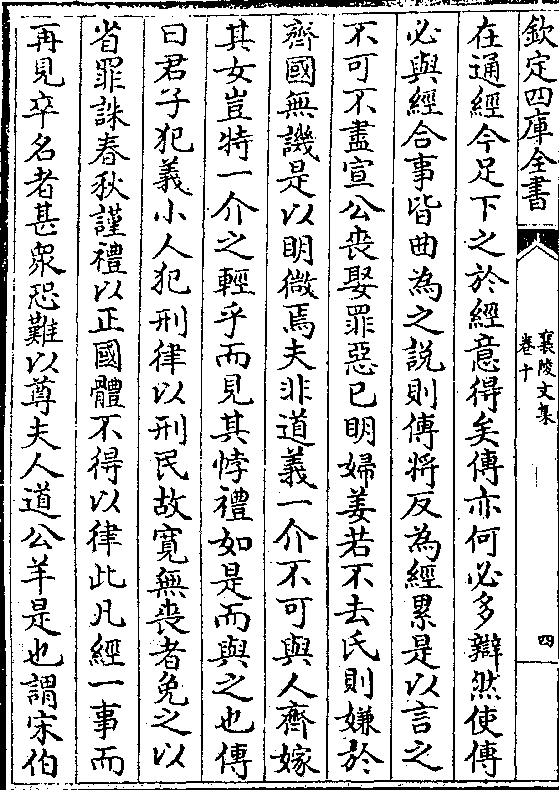 欽定四庫全書
襄陵文集
卷十
四
在通經今足下之於經意得矣傳亦何必多辯然使傳
必與經合事皆曲為之説則傳將反為經累是以言之
不可不盡宣公喪娶罪惡已明婦姜若不去氏則嫌於
齊國無譏是以明微焉夫非道義一介不可與人齊嫁
其女豈特一介之輕乎而見其悖禮如是而與之也傳
曰君子犯義小人犯刑律以刑民故寛無喪者免之以
省罪誅春秋謹禮以正國體不得以律此凡經一事而
再見卒名者甚衆恐難以尊夫人道公羊是也謂宋伯